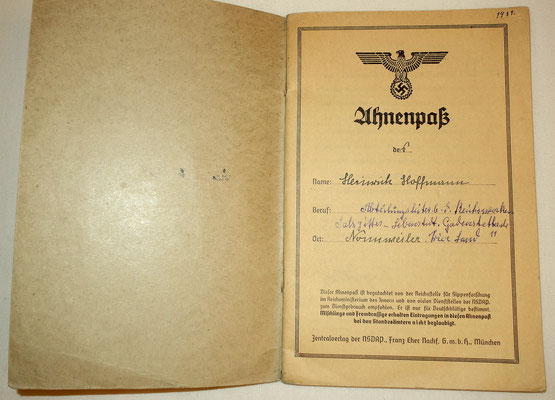 1939.
Ahnenpaß
des
Name: Heinrich Hoffmann
Beruf: Abteilungsleiter b. d. Reichswerken
Salzgitter-
Ort: Nonnweiler
Dieser Ahnenpaß ist begutachtet von der Reichsstelle für Sippenforschung
im Reichsministerium des Innern und von vielen Dienststellen der NSDAP.
zum Dienstgebrauch empfohlen. Er ist nur für Deutschblütige bestimmt.
Mischlinge und Fremdrassige erhalten Eintragungen in diesen Ahnenpaß
bei den Standesämtern nicht beglaubigt.
Zentralverlag der NSDAP., Franz Eher Nachf. G. m. b. H., München